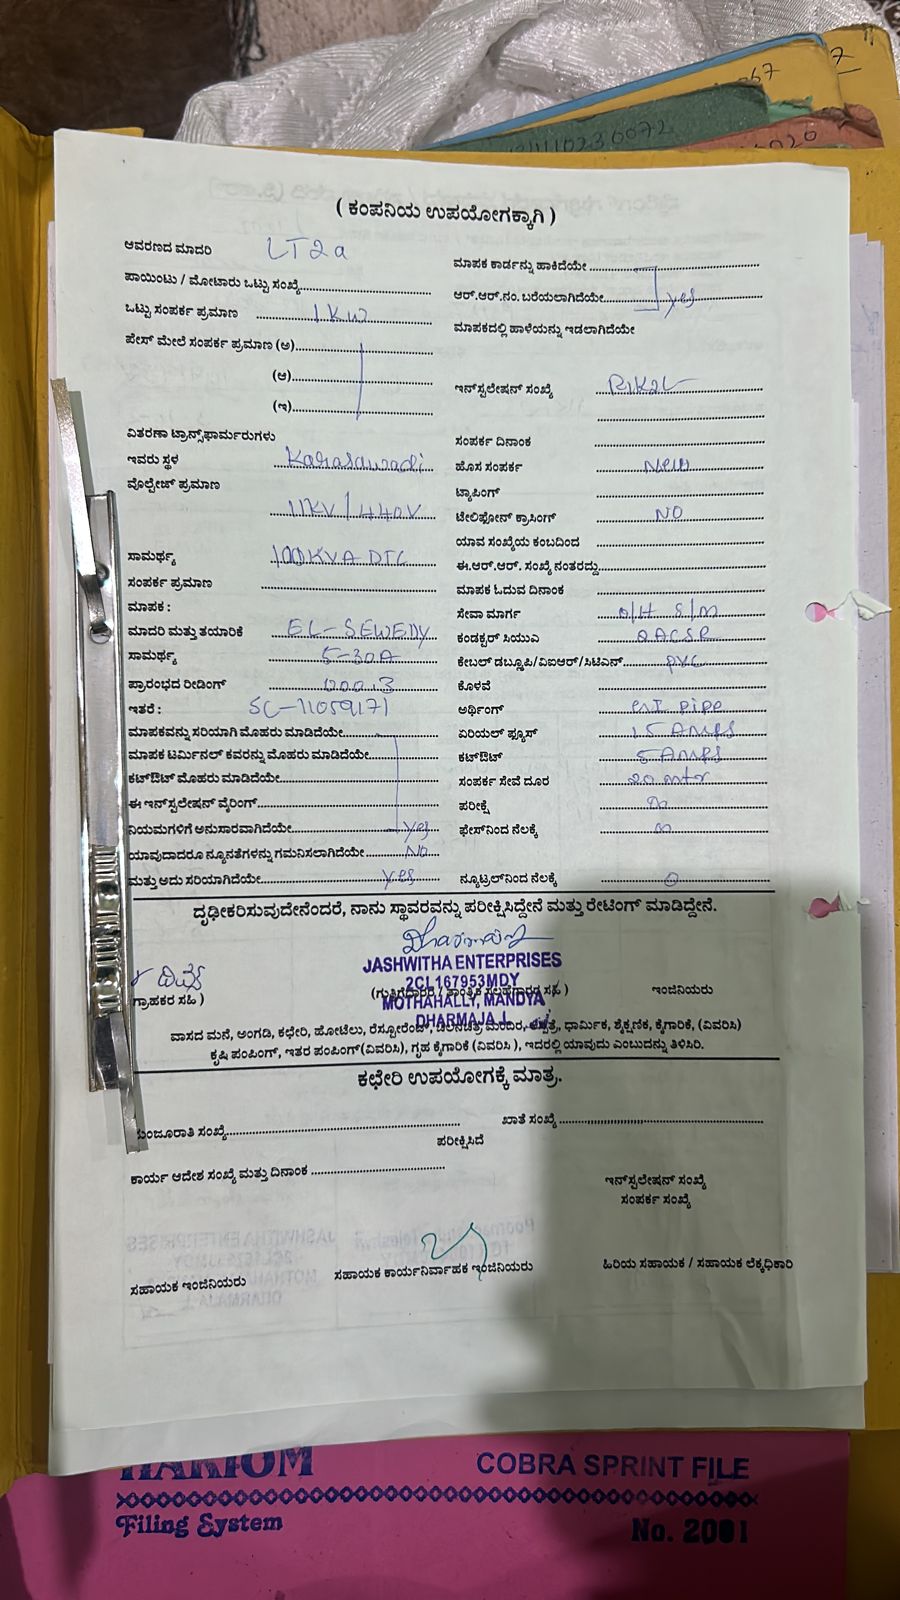 7
67
11110236072
( ಕಂಪನಿಯ ಉಪಯೋಗಕ್ಕಾಗಿ )
ಆವರಣದ ಮಾದರಿ LT2a
ಪಾಯಿಂಟು / ಮೋಟಾರು ಒಟ್ಟು ಸಂಖ್ಯೆ
ಒಟ್ಟು ಸಂಪರ್ಕ ಪ್ರಮಾಣ 1KW
ಫೇಸ್ ಮೇಲೆ ಸಂಪರ್ಕ ಪ್ರಮಾಣ (ಅ)
(ಆ)
(ಇ)
ವಿತರಣಾ ಟ್ರಾನ್ಸ್‌ಫಾರ್ಮರುಗಳು
ಇವರು ಸ್ಥಳ Karasawadi
ವೊಲ್ಟೇಜ್ ಪ್ರಮಾಣ
11KV/440V
ಸಾಮರ್ಥ್ಯ 100KVA DTC
ಸಂಪರ್ಕ ಪ್ರಮಾಣ
ಮಾಪಕ :
ಮಾದರಿ ಮತ್ತು ತಯಾರಿಕೆ EL-SEWEDY
ಸಾಮರ್ಥ್ಯ 5-30A
ಪ್ರಾರಂಭದ ರೀಡಿಂಗ್ 000.3
ಇತರೆ : SC-11059171
ಮಾಪಕವನ್ನು ಸರಿಯಾಗಿ ಮೊಹರು ಮಾಡಿದೆಯೇ
ಮಾಪಕ ಟರ್ಮಿನಲ್ ಕವರನ್ನು ಮೊಹರು ಮಾಡಿದೆಯೇ
ಕಟ್‌ಔಟ್ ಮೊಹರು ಮಾಡಿದೆಯೇ
ಈ ಇನ್‌ಸ್ಟಲೇಷನ್ ವೈರಿಂಗ್
ನಿಯಮಗಳಿಗೆ ಅನುಸಾರವಾಗಿದೆಯೇ yes
ಯಾವುದಾದರೂ ನ್ಯೂನತೆಗಳನ್ನು ಗಮನಿಸಲಾಗಿದೆಯೇ No
ಮತ್ತು ಅದು ಸರಿಯಾಗಿದೆಯೇ yes
ಮಾಪಕ ಕಾರ್ಡನ್ನು ಹಾಕಿದೆಯೇ
ಆರ್.ಆರ್.ನಂ. ಬರೆಯಲಾಗಿದೆಯೇ yes
ಮಾಪಕದಲ್ಲಿ ಹಾಳೆಯನ್ನು ಇಡಲಾಗಿದೆಯೇ
ಇನ್‌ಸ್ಟಲೇಷನ್ ಸಂಖ್ಯೆ
ಸಂಪರ್ಕ ದಿನಾಂಕ
ಹೊಸ ಸಂಪರ್ಕ New
ಟ್ಯಾಪಿಂಗ್
ಟೆಲಿಫೋನ್ ಕ್ರಾಸಿಂಗ್ NO
ಯಾವ ಸಂಖ್ಯೆಯ ಕಂಬದಿಂದ
ಈ.ಆರ್.ಆರ್. ಸಂಖ್ಯೆ ನಂತರದ್ದು
ಮಾಪಕ ಓದುವ ದಿನಾಂಕ
ಸೇವಾ ಮಾರ್ಗ O/H S/M
ಕಂಡಕ್ಟರ್ ಸಿಯುಎ AACSR
ಕೇಬಲ್ ಡಬ್ಲ್ಯೂಪಿ/ವಿಐಆರ್/ಸಿಟಿಎಸ್ PVC
ಕೊಳವೆ
ಅರ್ಥಿಂಗ್ pipe
ಏರಿಯಲ್ ಫ್ಯೂಸ್ 15 Amps
ಕಟ್‌ಔಟ್ 5 Amps
ಸಂಪರ್ಕ ಸೇವೆ ದೂರ 20 mtr
ಪರೀಕ್ಷೆ ∞
ಫೇಸ್‌ನಿಂದ ನೆಲಕ್ಕೆ ∞
ನ್ಯೂಟ್ರಲ್‌ನಿಂದ ನೆಲಕ್ಕೆ 0
ದೃಢೀಕರಿಸುವುದೇನೆಂದರೆ, ನಾನು ಸ್ಥಾವರವನ್ನು ಪರೀಕ್ಷಿಸಿದ್ದೇನೆ ಮತ್ತು ರೇಟಿಂಗ್ ಮಾಡಿದ್ದೇನೆ.
JASHWITHA ENTERPRISES
2CL167953MDY
ಗ್ರಾಹಕರ ಸಹಿ )
(ಗುತ್ತಿಗೆದಾರರ / ತಾಂತ್ರಿಕ ಸಲಹೆಗಾರರ ಸಹಿ )
ಇಂಜಿನಿಯರು
MOTHAHALLY, MANDYA
DHARMAJA.L
ವಾಸದ ಮನೆ, ಅಂಗಡಿ, ಕಛೇರಿ, ಹೋಟೆಲು, ರೆಸ್ಟೋರೆಂಟ್, ಚಲನಚಿತ್ರ ಮಂದಿರ, ಆಸ್ಪತ್ರೆ, ಧಾರ್ಮಿಕ, ಶೈಕ್ಷಣಿಕ, ಕೈಗಾರಿಕೆ, (ವಿವರಿಸಿ)
ಕೃಷಿ ಪಂಪಿಂಗ್, ಇತರ ಪಂಪಿಂಗ್(ವಿವರಿಸಿ), ಗೃಹ ಕೈಗಾರಿಕೆ (ವಿವರಿಸಿ ), ಇದರಲ್ಲಿ ಯಾವುದು ಎಂಬುದನ್ನು ತಿಳಿಸಿರಿ.
ಕಛೇರಿ ಉಪಯೋಗಕ್ಕೆ ಮಾತ್ರ.
ಮಂಜೂರಾತಿ ಸಂಖ್ಯೆ
ಖಾತೆ ಸಂಖ್ಯೆ
ಪರೀಕ್ಷಿಸಿದೆ
ಕಾರ್ಯ ಆದೇಶ ಸಂಖ್ಯೆ ಮತ್ತು ದಿನಾಂಕ
ಇನ್‌ಸ್ಟಲೇಷನ್ ಸಂಖ್ಯೆ
ಸಂಪರ್ಕ ಸಂಖ್ಯೆ
ಸಹಾಯಕ ಇಂಜಿನಿಯರು
ಸಹಾಯಕ ಕಾರ್ಯನಿರ್ವಾಹಕ ಇಂಜಿನಿಯರು
ಹಿರಿಯ ಸಹಾಯಕ / ಸಹಾಯಕ ಲೆಕ್ಕಧಿಕಾರಿ
HARIOM
COBRA SPRINT FILE
Filing System
No. 2001